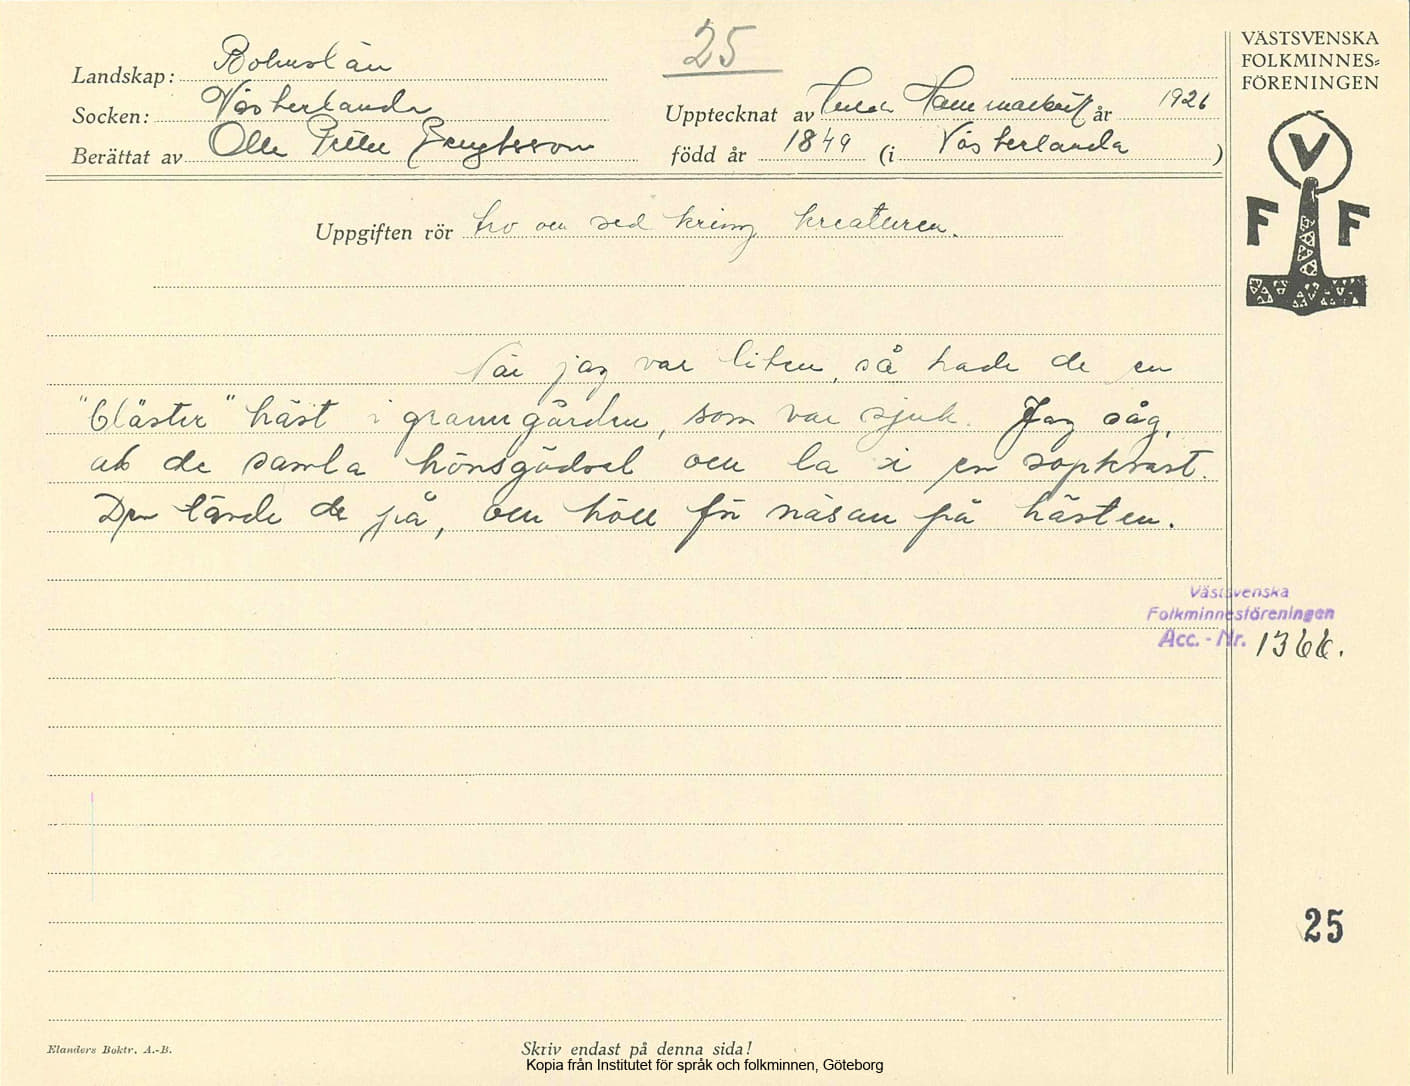 25
VÄSTSVENSKA
FOLKMINNES=
FÖRENINGEN
Landskap: Bohuslän
Socken: Västerlanda
Upptecknat av Hulda Hammarbäck år 1926
Berättat av Olle Petter Bengtsson
född år 1849 (i Västerlanda)
V
F F
Uppgiften rör tro och sed kring kreaturen.
När jag var liten, så hade de en
"bläster" häst i granngården, som var sjuk. Jag såg,
att de samla hönsgödsel och la i en sopkvast.
Den tände de på, och höll för näsan på hästen.
Västsvenska
Folkminnesföreningen
Acc. - Nr. 1366.
25
Elanders Boktr. A.-B.
Skriv endast på denna sida!
Kopia från Institutet för språk och folkminnen, Göteborg